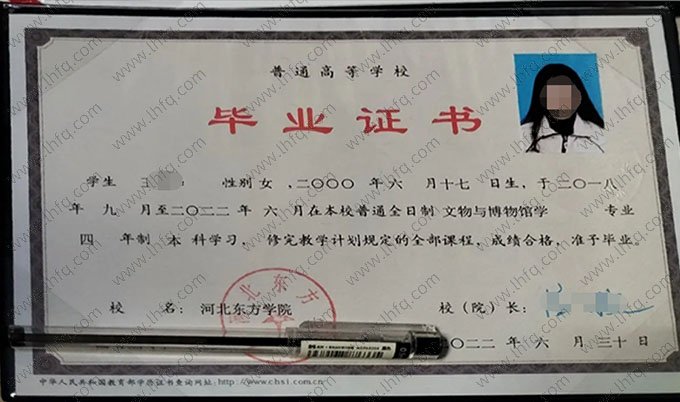 普通高等学校
毕业证书
学生 王 性别 女 ,二〇〇〇 年 六 月 十七 日生, 于 二〇一八
年 九 月至 二〇二二 年 六 月在本校普通全日制 文物与博物馆学 专业
四 年制 本 科学习, 修完教学计划规定的全部课程, 成绩合格, 准予毕业。
校 名: 河北东方学院 校(院)长:
北东方
〇二二 年 六 月 三十 日
中华人民共和国教育部学历证书查询网址: http://www.chsi.com.cn
www.lhfq.com